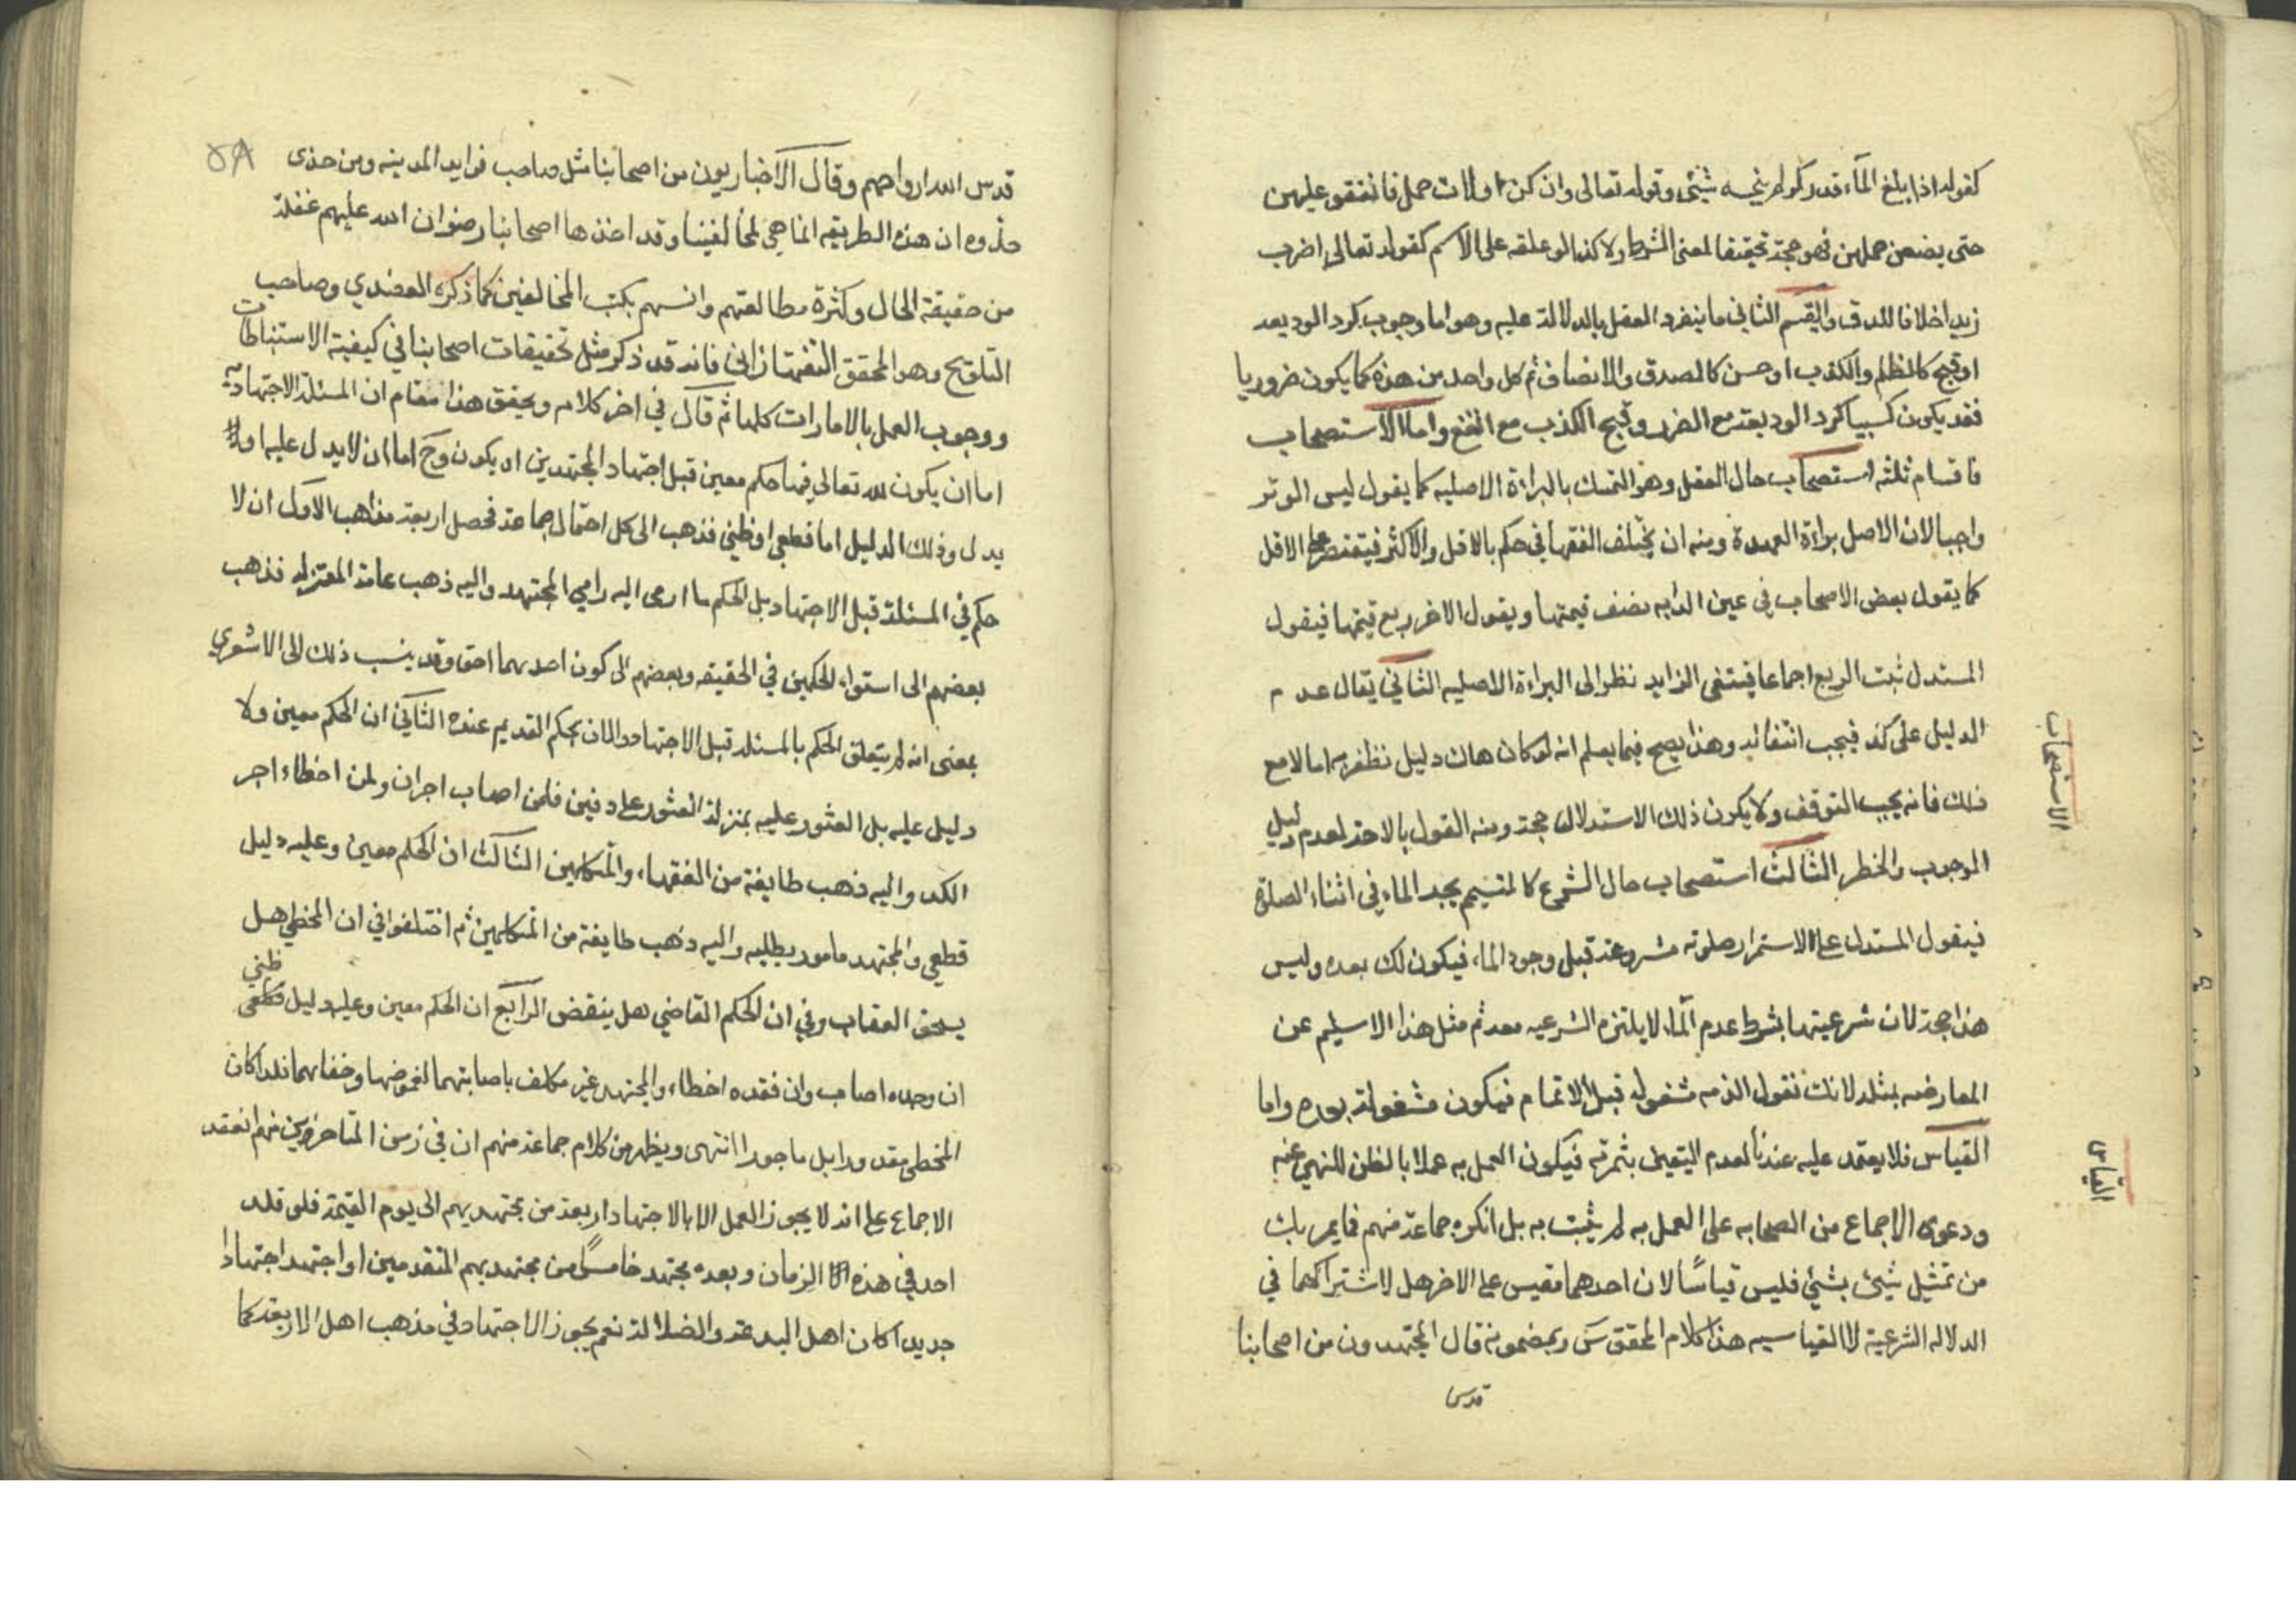 كقوله اذا بلغ المآء قدر كر لم ينجسه شيئى وقوله تعالى وان كن اولات حمل فانفقو عليهن
حتى يضعن حملهن فهو حجة تحقيقا لمعنى الشرط ولا كذا لو علقه على الاسم كقوله تعالى اضرب
زيدا خلافا للدقاق والقسم الثانى ما ينفرد العقل بالدلالة عليه وهو اما وجوب كرد الوديعه
او قبح كالظلم والكذب او حسن كالصدق والانصاف ثم كل واحد من هذه كما يكون ضروريا
فقد يكون كسبيا كرد الوديعة مع الضرر وقبح الكذب مع النفع واما الاستصحاب
فاقسام ثلثه استصحاب حال العقل وهو التمسك بالبراءة الاصليه كما يقول ليس الوتر
واجبا لان الاصل براءة العهدة ومنه ان يختلف الفقها فى حكم بالاقل والاكثر فيقتصر على الاقل
كما يقول بعض الاصحاب فى عين الدابه نصف قيمتها ويقول الاخر ربع قيمتها فيقول
المستدل ثبت الربع اجماعا فينتفى الزايد نظرا الى البراءة الاصليه الثانى يقال عدم
الدليل على كذ فيجب انتفائه وهذا يصح فيما يعلم انه لو كان هناك دليل لظفر به اما لا مع
ذلك فانه يجب التوقف ولا يكون ذلك الاستدلال حجة ومنه القول بالاخذ لعدم دليل
الوجوب والخطر الثالث استصحاب حال الشرع كالمتيمم يجد الماء فى اثناء الصلوة
فيقول المستدل على الاستمرار صلوته مشروعة قبل وجود الماء فيكون لك بعده وليس
هذا حجة لان شرعيتها بشرط عدم المآء لا يلتزم الشرعيه معه ثم مثل هذا لا يسلم عن
المعارضه بمثله لانك تقول الذمه مشغوله قبل الاتمام فيكون مشغولة بعده واما
القياس فلا يعتمد عليه عندنا لعدم اليقين بثمرته فيكون العمل به عملا بالظن المنهى عنه
ودعوى الاجماع من الصحابه على العمل به لم يثبت به بل انكره جماعة منهم فما يمر بك
من تمثيل شيئ بشئ فليس قياسًا لان احدهما مقيس على الاخر هل لاشتراكهما فى
الدلاله الشرعية لا القياسيه هذا كلام المحقق وبمضمونه قال المجتهدون من اصحابنا
قدس
الاستصحاب
القياس
٥٨
قدس الله ارواحهم وقال الاخباريون من اصحابنا مثل صاحب فوايد المدينه ومن حذى
حذوه ان هذه الطريقه انما هى لمخالفينا وقد اخذها اصحابنا رضوان الله عليهم غفلة
من حقيقة الحال وكثرة مطالعتهم وانسهم بكتب المخالفين كما ذكره العضدي وصاحب
التلويح وهو المحقق التفتازانى فانه قد ذكر مثل تحقيقات اصحابنا فى كيفية الاستنباطات
ووجوب العمل بالامارات كلها ثم قال فى اخر كلامه ويحقق هذا مقام ان المسئلة الاجتهادية
اما ان يكون لله تعالى فيها حكم معين قبل اجتهاد المجتهدين او يكون وح اما ان لا يدل عليه او لا
يدل وذلك الدليل اما قطعى او ظنى فذهب الى كل احتمال جماعة فحصل اربعة مذاهب الاول ان لا
حكم فى المسئلة قبل الاجتهاد بل الحكم ما ادى اليه راى المجتهد واليه ذهب عامة المعتزله فذهب
بعضهم الى استواء الحكمين فى الحقيقه وبعضهم الى كون احدهما احق وقد ينسب ذلك الى الاشعري
بمعنى انه لم يتعلق الحكم بالمسئله قبل الاجتهاد والا لان الحكم القديم عنده الثانى ان الحكم معين ولا
دليل عليه بل العثور عليه بمنزلة العثور على دفين فلمن اصاب اجران ولمن اخطاء اجر
الكد واليه ذهب طايفة من الفقهاء والمتكلمين الثالث ان الحكم معين وعليه دليل
قطعى والمجتهد مامور بطلبه واليه ذهب طايفة من المتكلمين ثم اختلفوا فى ان المخطى هل
يستحق العقاب وفى ان الحكم القاضى هل ينقض الرابع ان الحكم معين وعليه دليل قطعى ظنى
ان وجده اصاب وان فقده اخطاء والمجتهد غير مكلف باصابتهما لغموضها وخفائهما فلذا كان
المخطى معذورا بل ماجورا انتهى ويظهر من كلام جماعة منهم ان فى زمن المتاخرين منهم انعقد
الاجماع على انه لا يجوز العمل الا بالاجتهاد اربعة من مجتهديهم الى يوم القيمة فلو قلد
احد فى هذه الزمان وبعده مجتهد خامسًا من مجتهديهم المتقدمين او اجتهد اجتهادا
جديدا كان اهل البدعة والضلالة نعم يجوز الاجتهاد فى مذهب اهل الاربعة كما